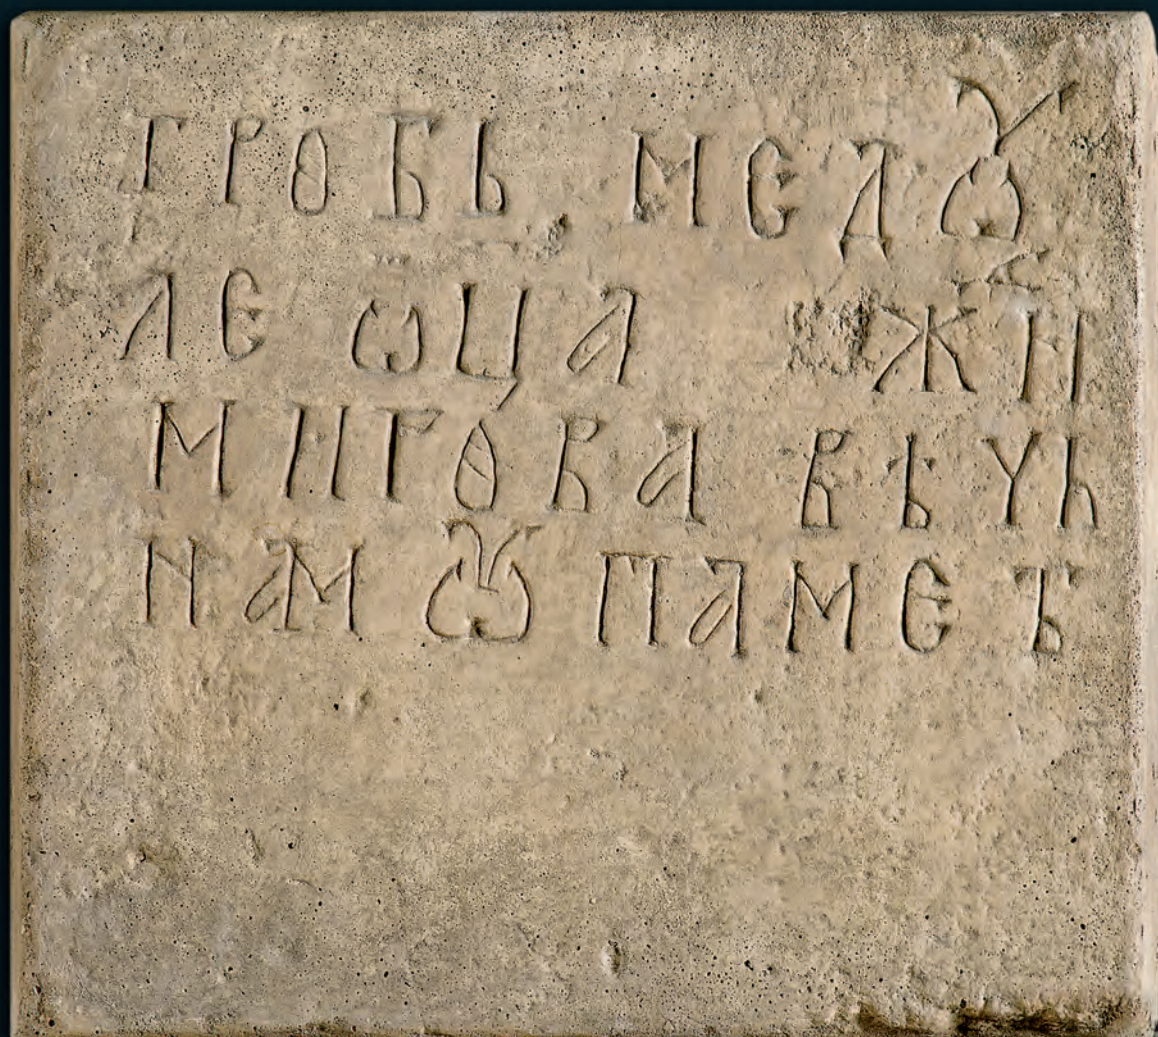 ГРОБЬ МЕДꙊ
ЛЕ ѠЦА ЖИ
МИГОВА ВѢЧЬ
НА МꙊ ПАМЕТЬ